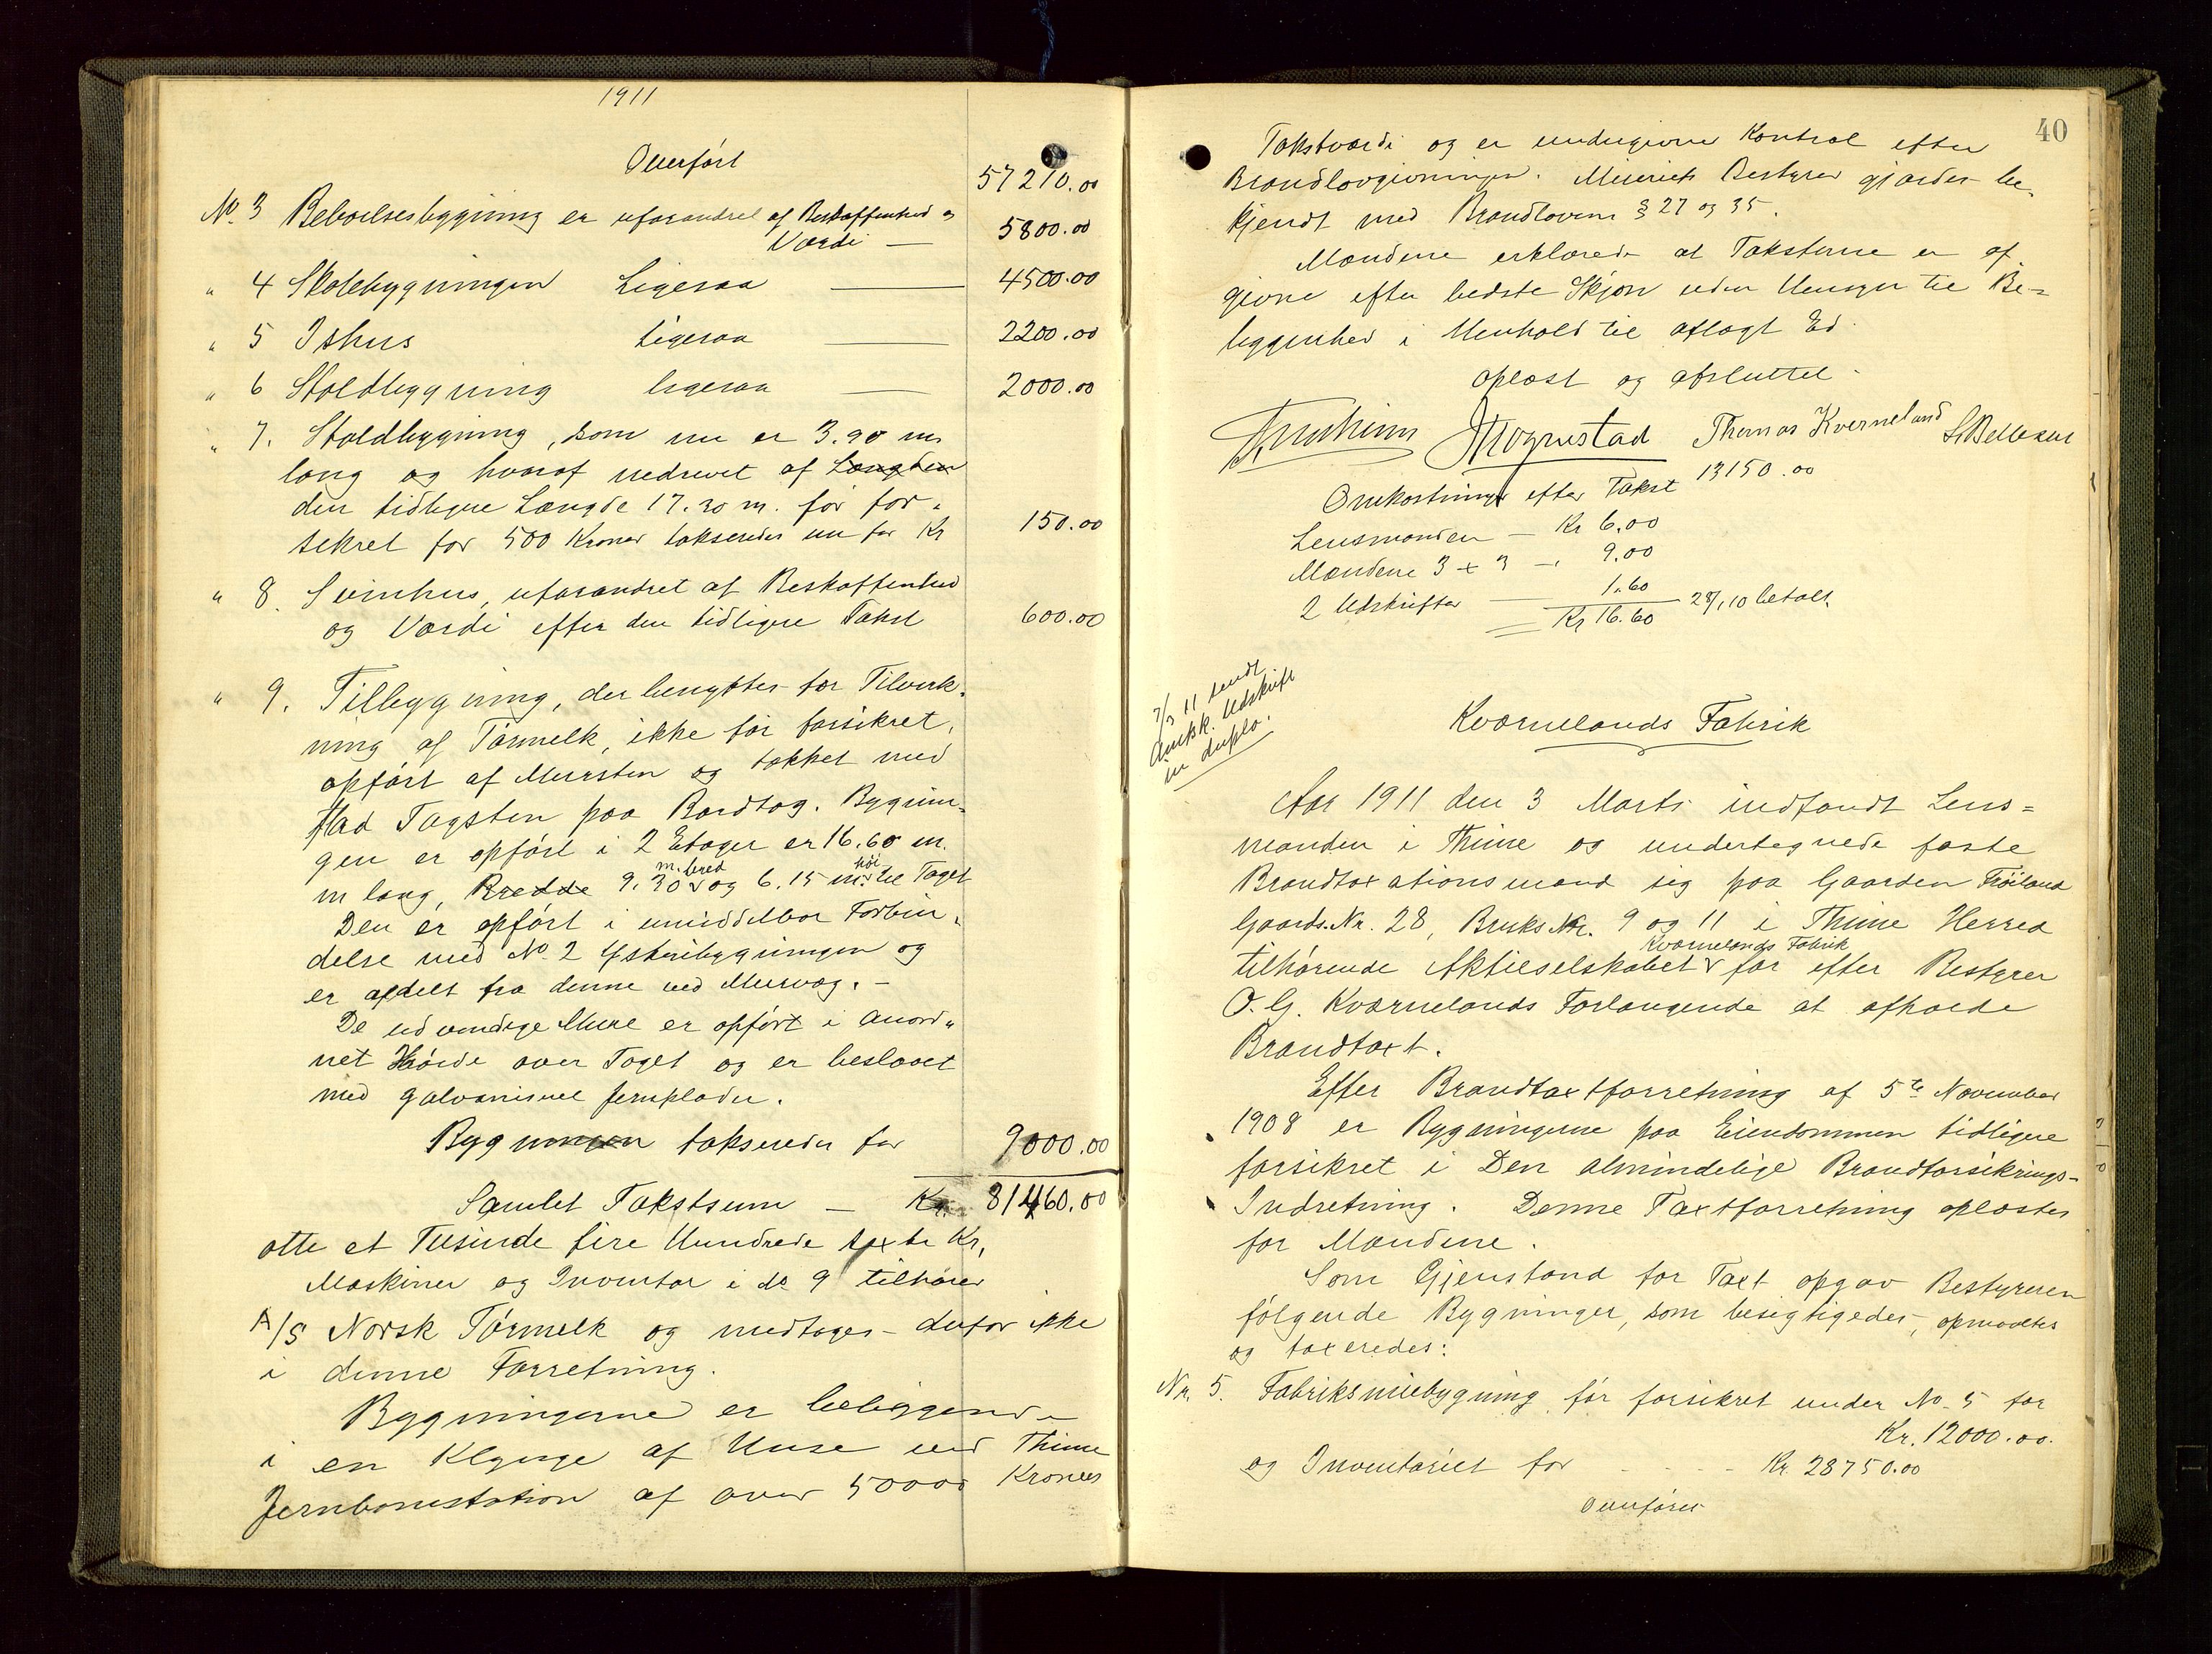 1911
Overført
57210.00
No. 3 Beboelsesbygning er uforandret af Beskaffenhed og
Værdi — 5800.00
" 4 Skolebygningen Ligesaa — 4500.00
" 5 Ishus Ligesaa — 2200.00
" 6 Staldbygning ligesaa — 2000.00
" 7. Staldbygning, som nu er 3.90 m
lang og hvoraf nedrevet af Længden
den tidligere Længde 17.20 m. før for-
sikret for 500 Kroner takseredes nu for Kr 150.00
" 8. Svinhus, uforandret af Beskaffenhed
og Værdi efter den tidligere Takst 600.00
" 9. Tilbygning, der benyttes for Tilvirk-
ning af Tørmelk, ikke før forsikret,
opført af Mursten og tækket med
flad Tagsten paa Bordtag. Bygnin-
gen er opført i 2 Etager er 16.60 m.
m. bred høi
m lang, Bredde 9.30 v og 6.15 m. v til Taget
Den er opført i umiddelbar Forbin-
delse med No. 2 Ysteribygningen og
er afdelt fra denne ved Murvæg. –
De udvendige Mure er opført i anord-
net Høide over Taget og er beslaaet
med galvaniseret Jernplader.
Bygningen takseredes for 9000.00
Samlet Takstsum — Kr. 81460.00
otte et Tusinde fire Hundrede sexti Kr,
Maskiner og Inventar i No 9 tilhører
A/S Norsk Tørmelk og medtages derfor ikke
i denne Forretning.
Bygningerne er beliggende
i en Klynge af Huse ved Thime
Jernbanestation af over 50000 Kroners
40
Takstværdi og er undergivne Kontrol efter
Brandlovgivningen. Meieriets Bestyrer gjordes be-
kjendt med Brandlovens § 27 og 35.
Mændene erklærede at Taksterne er af
givne efter bedste Skjøn uden Hensyn til Be-
liggenhed i Henhold til aflagt Ed.
Oplæst og afsluttet.
Thomas Kverneland
Omkostninger efter Takst 13150.00
Lensmanden — Kr 6.00
Mændene 3 x 3 — " 9.00
2 Udskrifter — 1.60
Kr 16.60 28/10 betalt.
7/3 11 sendt
Amtsk. Udskrift
in duplo.
Kværnelands Fabrik
Aar 1911 den 3 Marts indfandt Lens-
manden i Thime og undertegnede faste
Brandtaxationsmænd sig paa Gaarden Frøiland
Gaards.Nr. 28, Bruks Nr. 9 og 11 i Thime Herred
Kværnelands Fabrik
tilhørende Aktieselskabet v for efter Bestyrer
O. G. Kværnelands Forlangende at afholde
Brandtaxt.
Efter Brandtaxtforretning af 5te November
1908 er Bygningerne paa Eiendommen tidligere
forsikret i Den almindelige Brandforsikrings-
Indretning. Denne Taxtforretning oplæstes
for Mændene.
Som Gjenstand for Taxt opgav Bestyreren
følgende Bygninger, som besigtigedes, opmaaltes
og taxeredes:
Nr. 5. Fabriksmiebygning før forsikret under No. 5 for
Kr. 12000.00.
og Inventariet for - - - - Kr. 28750.00
Overføres